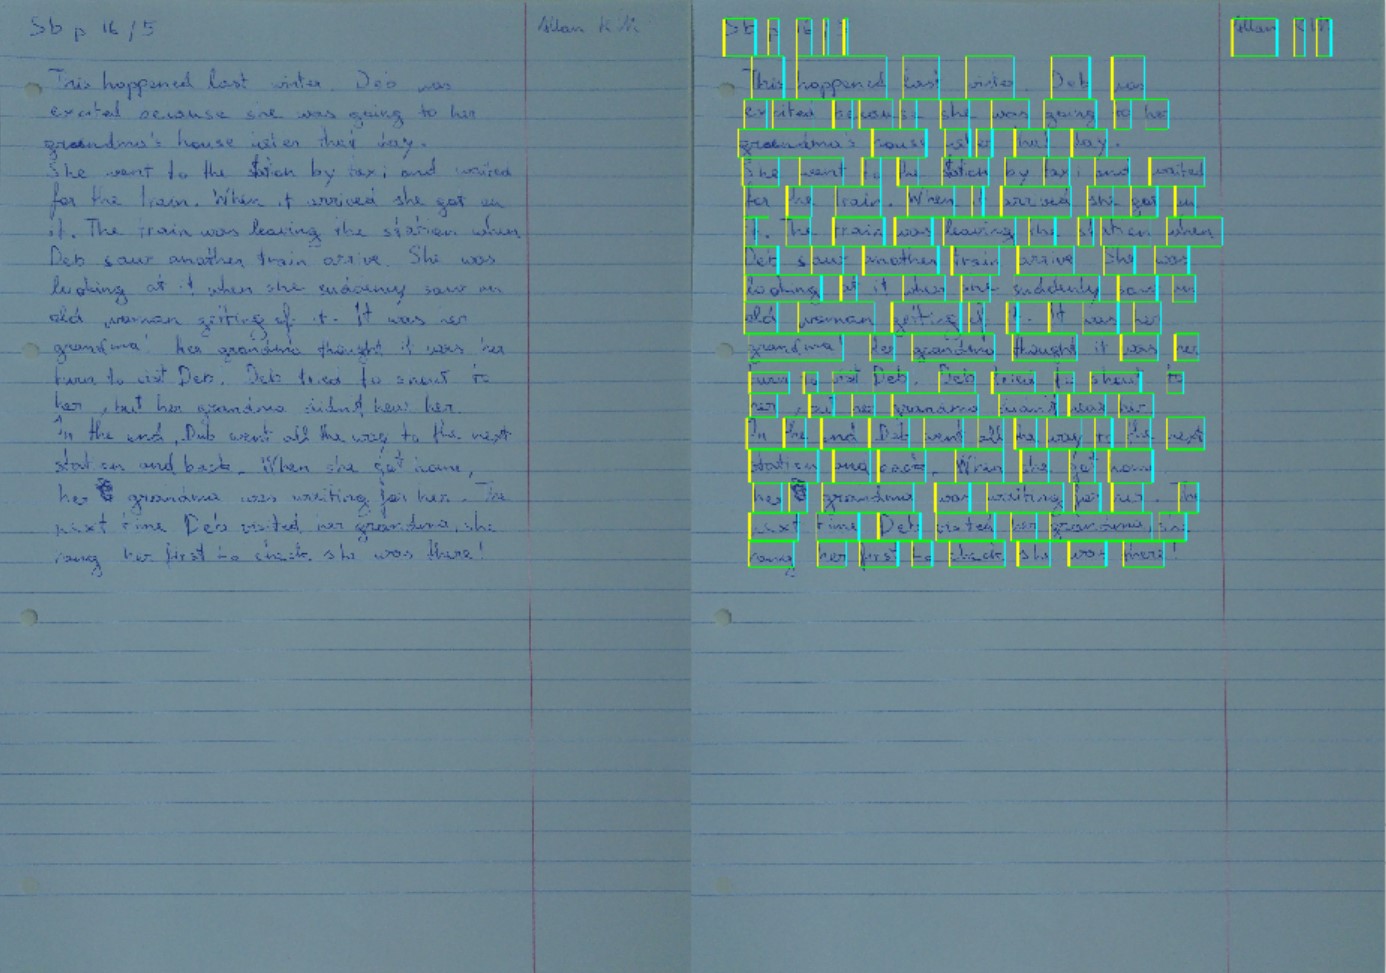 Sb p 16/5
Allan
This happened last winter. Deb was
excited because she was going to her
grandma's house later day.
She went to the station by taxi and waited
for the train. When it arrived she got on
it. The train was leaving the station when
Deb saw another train arrive. She was
looking at it when she suddenly saw an
old woman getting of it. It was her
grandma! her grandma thought it was her
turn to visit Deb. Deb tried to shout to
her, but her grandma didn't hear her.
In the end, Deb went all the way to the next
station and back. When she got home,
her grandma was waiting for her. The
next time Deb visited her grandma, she
rang her first to check she was there!
This happened last winter. Deb was
excited because she was going to her
grandma's house later day.
She went to the station by taxi and waited
for the train. When it arrived she got on
it. The train was leaving the station when
Deb saw another train arrive. She was
looking at it when she suddenly saw an
old woman getting of it. It was her
grandma! her grandma thought it was her
turn to visit Deb. Deb tried to shout to
her, but her grandma didn't hear her.
In the end, Deb went all the way to the next
station and back. When she got home
her grandma was waiting for her. The
next time Deb visited her grandma, she
rang her first to check she was there!